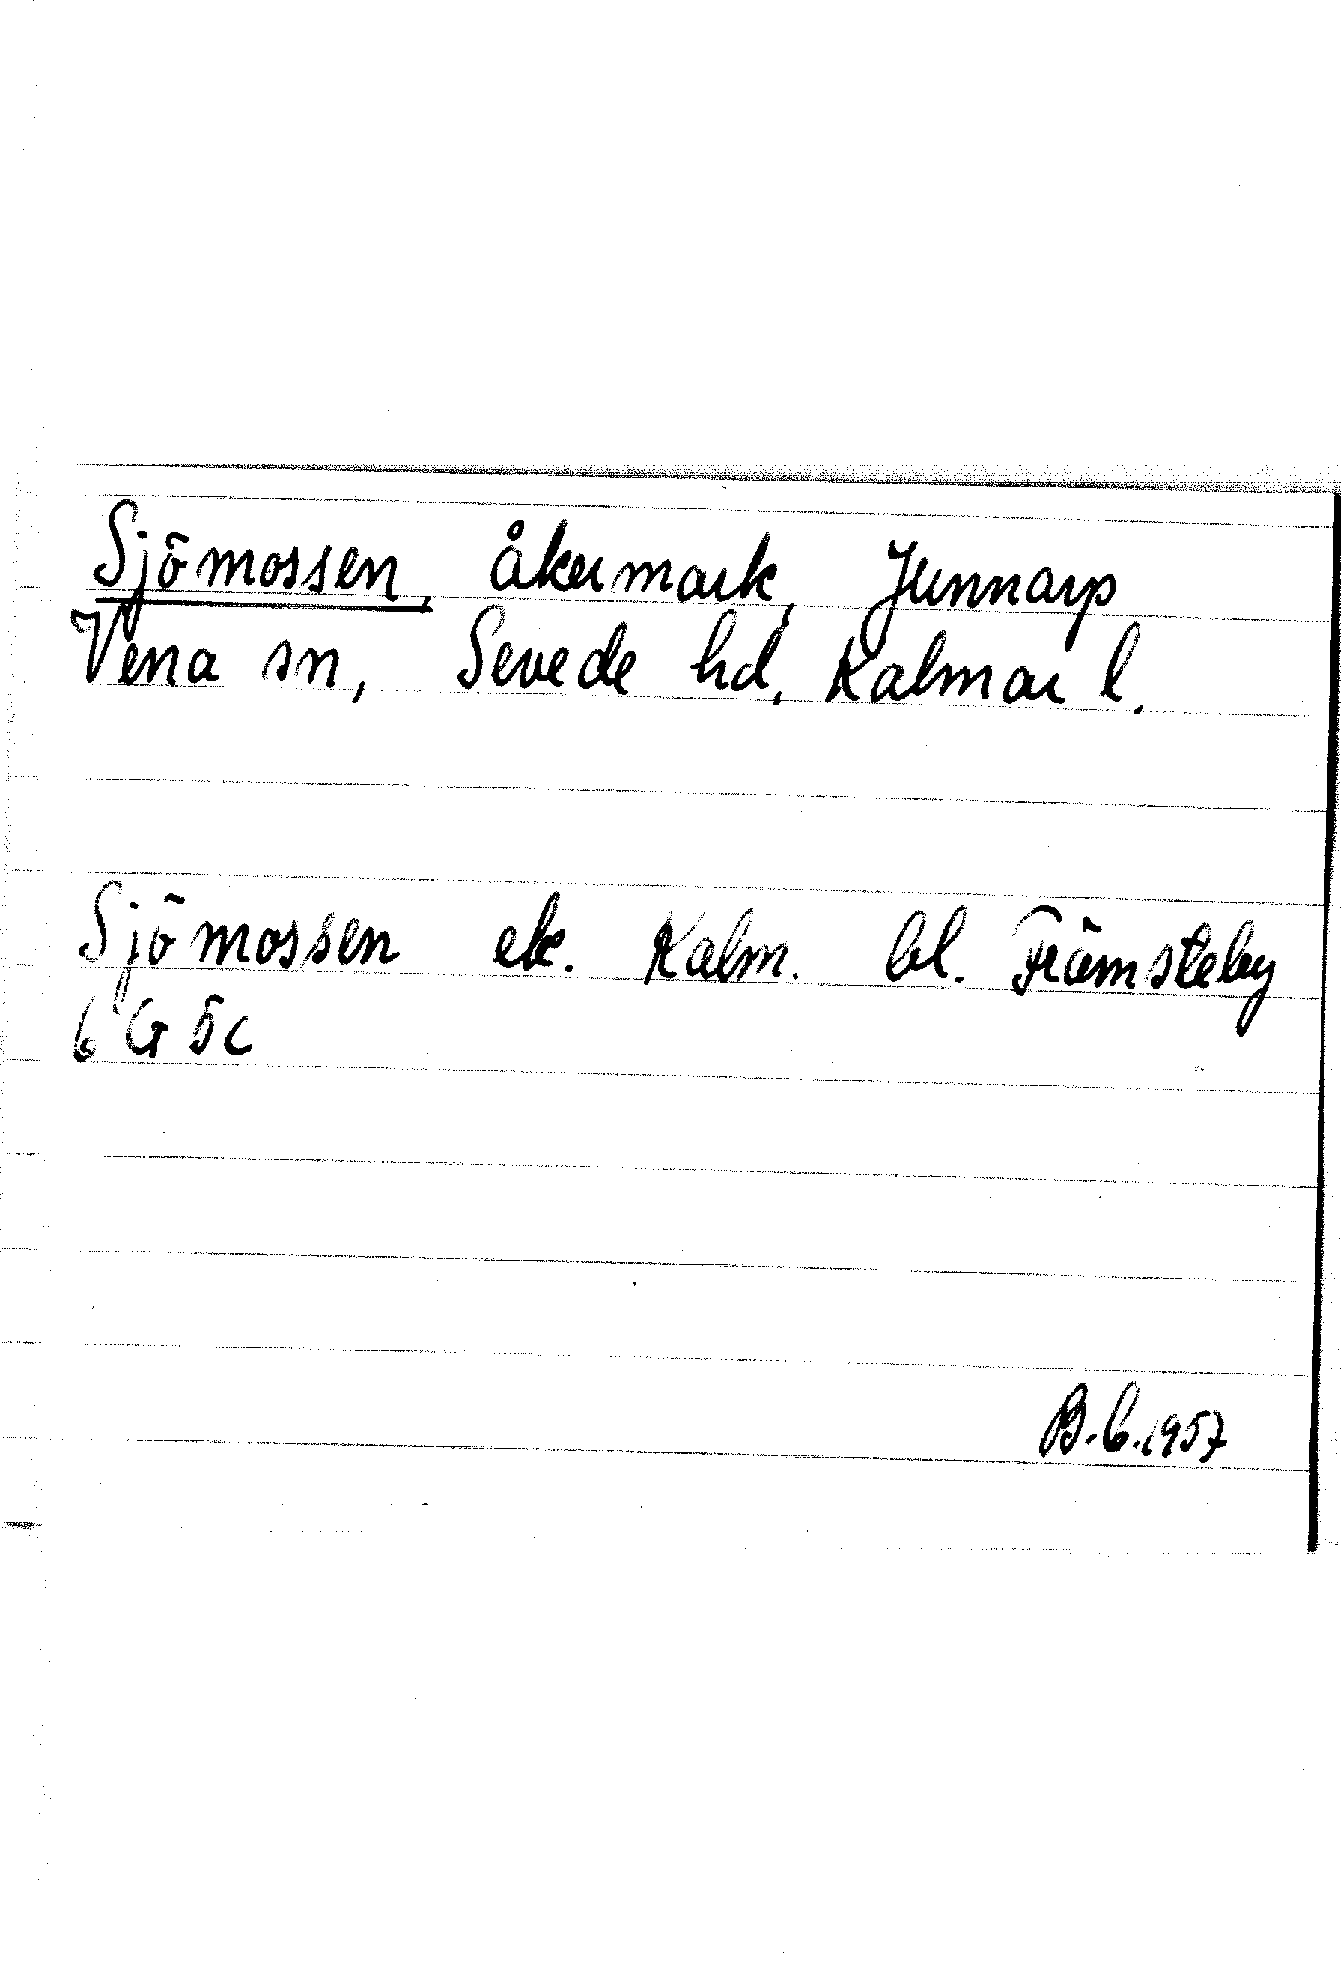 Sjömossen, åkermark, Junnarp
Vena sn, Sevede hd, Kalmar l.
Sjömossen ek. Kalm. bl. Främsteby
6 G 5c
B.C.1957